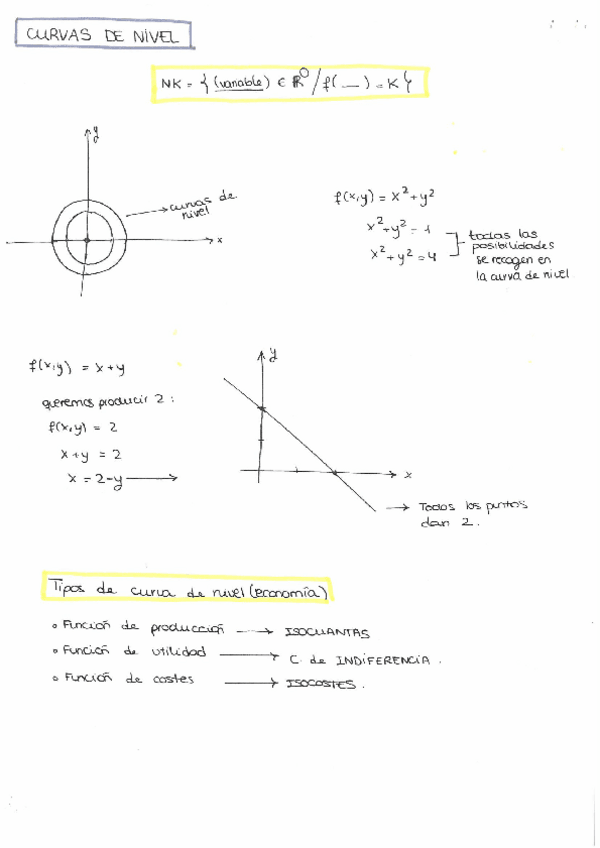 CURVAS DE NIVEL
NK = { (variable) ∈ ℝ^D / f( __ ) = K }
y
curvas de nivel
x
f(x,y) = x² + y²
x² + y² = 1
x² + y² = 4
todas las
posibilidades
se recogen en
la curva de nivel
f(x,y) = x + y
queremos producir 2 :
f(x,y) = 2
x + y = 2
x = 2 - y
y
x
Todos los puntos
dan 2.
Tipos de curva de nivel (economía)
Función de producción → ISOCUANTAS
Función de utilidad → C. de INDIFERENCIA.
Función de costes → ISOCOSTES.